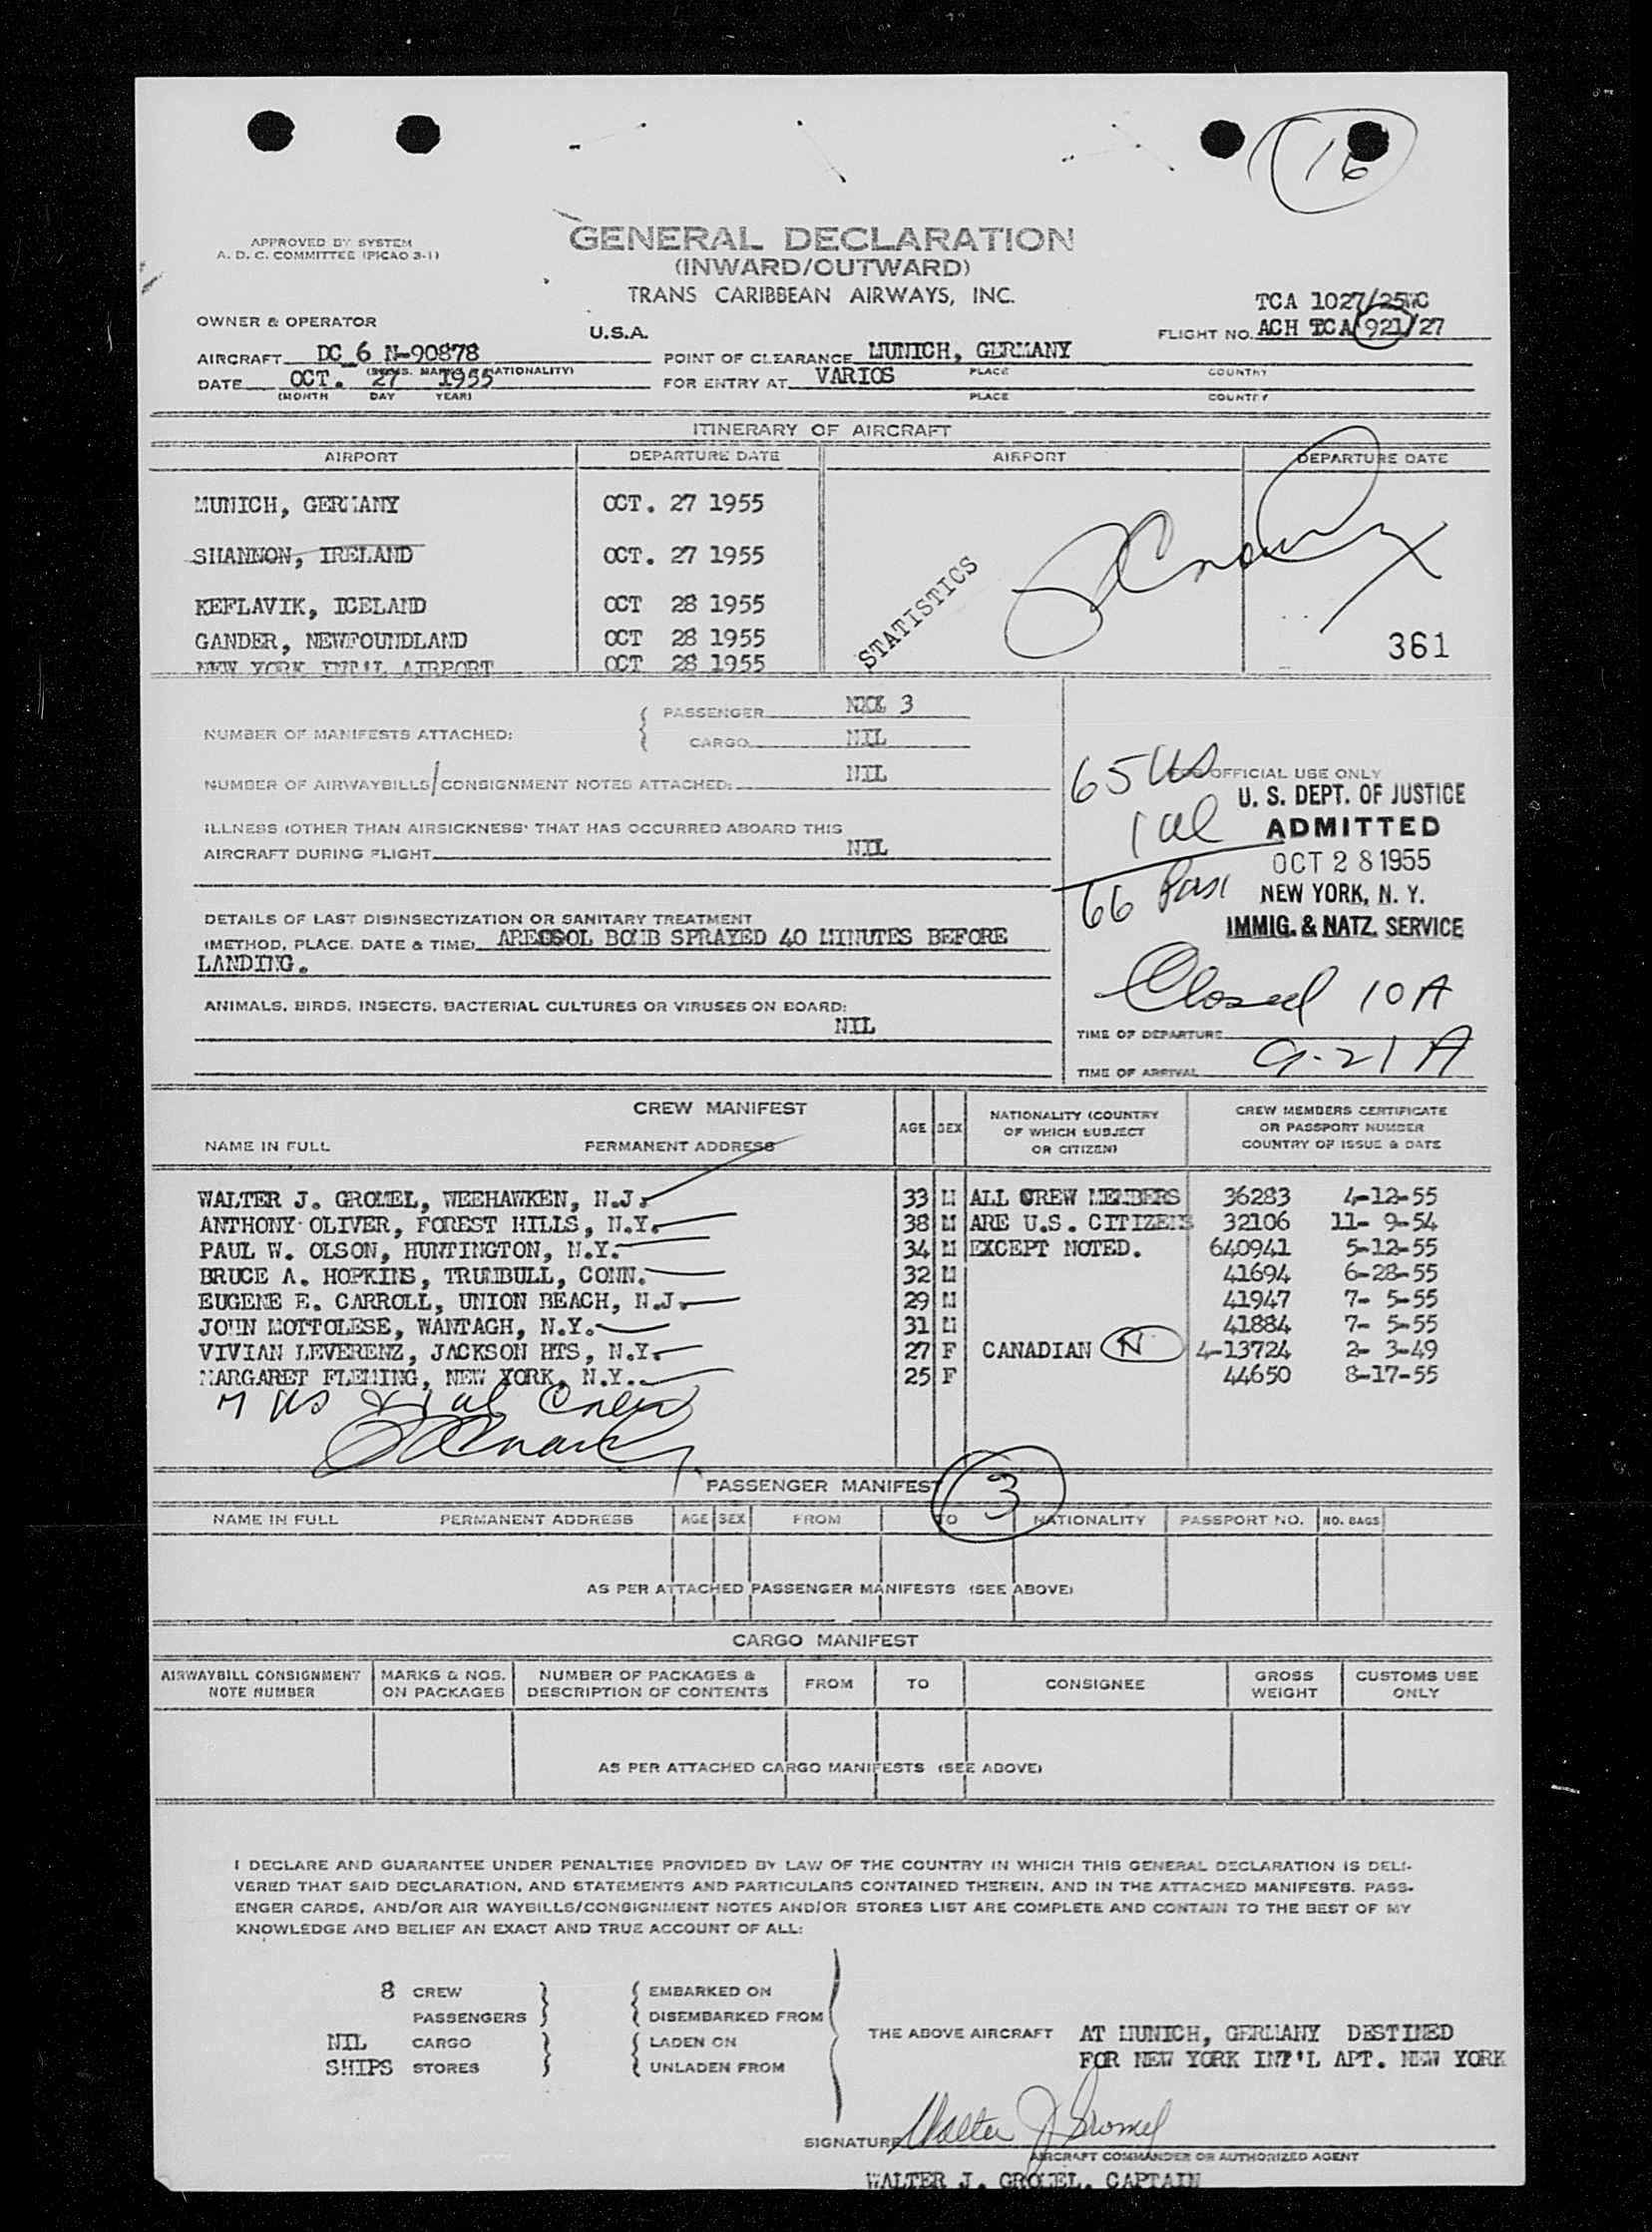 16
APPROVED BY SYSTEM
A. D. C. COMMITTEE (PICAO 3-1)
GENERAL DECLARATION
(INWARD/OUTWARD)
TRANS CARIBBEAN AIRWAYS, INC.
TCA 1027/25WC
OWNER & OPERATOR
U.S.A.
FLIGHT NO. ACH TCA 921/27
AIRCRAFT DC 6 N-90878
POINT OF CLEARANCE MUNICH, GERMANY
PLACE COUNTRY
DATE OCT. 27 1955
(MONTH DAY YEAR)
FOR ENTRY AT VARIOS
PLACE COUNTRY
ITINERARY OF AIRCRAFT
AIRPORT DEPARTURE DATE AIRPORT DEPARTURE DATE
MUNICH, GERMANY OCT. 27 1955
SHANNON, IRELAND OCT. 27 1955
KEFLAVIK, ICELAND OCT 28 1955
GANDER, NEWFOUNDLAND OCT 28 1955
NEW YORK INT'L AIRPORT OCT 28 1955
STATISTICS
361
NUMBER OF MANIFESTS ATTACHED:
PASSENGER 3
CARGO NIL
NUMBER OF AIRWAYBILLS/CONSIGNMENT NOTES ATTACHED: NIL
ILLNESS (OTHER THAN AIRSICKNESS) THAT HAS OCCURRED ABOARD THIS
AIRCRAFT DURING FLIGHT NIL
DETAILS OF LAST DISINSECTIZATION OR SANITARY TREATMENT
(METHOD, PLACE, DATE & TIME) AREOSOL BOMB SPRAYED 40 MINUTES BEFORE
LANDING.
ANIMALS, BIRDS, INSECTS, BACTERIAL CULTURES OR VIRUSES ON BOARD:
NIL
65 US
OFFICIAL USE ONLY
U. S. DEPT. OF JUSTICE
1 al
ADMITTED
OCT 28 1955
66 Pass
NEW YORK, N. Y.
IMMIG. & NATZ. SERVICE
Closed 10 A
TIME OF DEPARTURE
TIME OF ARRIVAL 9-21 A
CREW MANIFEST
NAME IN FULL PERMANENT ADDRESS
AGE SEX
NATIONALITY (COUNTRY
OF WHICH SUBJECT
OR CITIZEN)
CREW MEMBERS CERTIFICATE
OR PASSPORT NUMBER
COUNTRY OF ISSUE & DATE
WALTER J. GROMEL, WEEHAWKEN, N.J. 33 M ALL CREW MEMBERS 36283 4-12-55
ANTHONY OLIVER, FOREST HILLS, N.Y. 38 M ARE U.S. CITIZENS 32106 11- 9-54
PAUL W. OLSON, HUNTINGTON, N.Y. 34 M EXCEPT NOTED. 640941 5-12-55
BRUCE A. HOPKINS, TRUMBULL, CONN. 32 M 41694 6-28-55
EUGENE E. CARROLL, UNION BEACH, N.J. 29 M 41947 7- 5-55
JOHN MOTTOLESE, WANTAGH, N.Y. 31 M 41884 7- 5-55
VIVIAN LEVERENZ, JACKSON HTS, N.Y. 27 F CANADIAN N 4-13724 2- 3-49
MARGARET FLEMING, NEW YORK, N.Y. 25 F 44650 8-17-55
7 US & 1 al Crew
PASSENGER MANIFEST 3
NAME IN FULL PERMANENT ADDRESS AGE SEX FROM TO NATIONALITY PASSPORT NO. NO. BAGS
AS PER ATTACHED PASSENGER MANIFESTS (SEE ABOVE)
CARGO MANIFEST
AIRWAYBILL CONSIGNMENT
NOTE NUMBER
MARKS & NOS.
ON PACKAGES
NUMBER OF PACKAGES &
DESCRIPTION OF CONTENTS
FROM TO CONSIGNEE
GROSS
WEIGHT
CUSTOMS USE
ONLY
AS PER ATTACHED CARGO MANIFESTS (SEE ABOVE)
I DECLARE AND GUARANTEE UNDER PENALTIES PROVIDED BY LAW OF THE COUNTRY IN WHICH THIS GENERAL DECLARATION IS DELI-
VERED THAT SAID DECLARATION, AND STATEMENTS AND PARTICULARS CONTAINED THEREIN, AND IN THE ATTACHED MANIFESTS, PASS-
ENGER CARDS, AND/OR AIR WAYBILLS/CONSIGNMENT NOTES AND/OR STORES LIST ARE COMPLETE AND CONTAIN TO THE BEST OF MY
KNOWLEDGE AND BELIEF AN EXACT AND TRUE ACCOUNT OF ALL:
8 CREW EMBARKED ON
PASSENGERS DISEMBARKED FROM
NIL CARGO LADEN ON
SHIPS STORES UNLADEN FROM
THE ABOVE AIRCRAFT AT MUNICH, GERMANY DESTINED
FOR NEW YORK INT'L APT. NEW YORK
SIGNATURE Walter J Gromel
AIRCRAFT COMMANDER OR AUTHORIZED AGENT
WALTER J. GROMEL, CAPTAIN